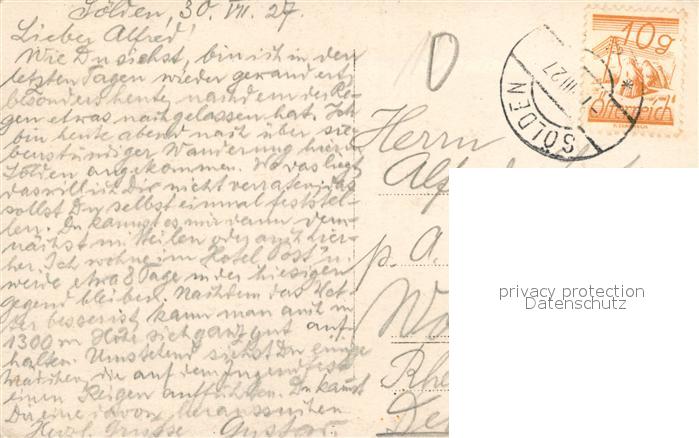 Sölden, 30. VII. 27.
Lieber Alfred!
Wie Du siehst, bin ich in den
letzten Tagen wieder gewandert,
besonders heute, nachdem der Re-
gen etwas nachgelassen hat. Ich
bin heute abend nach über sie-
benstündiger Wanderung hier in
Sölden angekommen. Wo das liegt,
das will ich Dir nicht verraten, das
sollst Du selbst einmal feststel-
len. Du kannst es mir dann dem-
nächst mitteilen oder auch hier-
her. Ich wohne im Hotel "Post" u.
werde etwa 8 Tage in der hiesigen
Gegend bleiben. Nachdem das Wet-
ter besser ist, kann man auch in
1300 m Höhe sich ganz gut auf-
halten. Umstehend siehst Du einige
Mädchen, die auf dem Jugendfest
einen Reigen aufführten. Du kannst
Dir eine davon heraussuchen.
Herzl. Grüsse Gustav
10g
Österreich
SÖLDEN
27
Herrn
Alf
p. A.
Wo
Rhe
De
privacy protection
Datenschutz